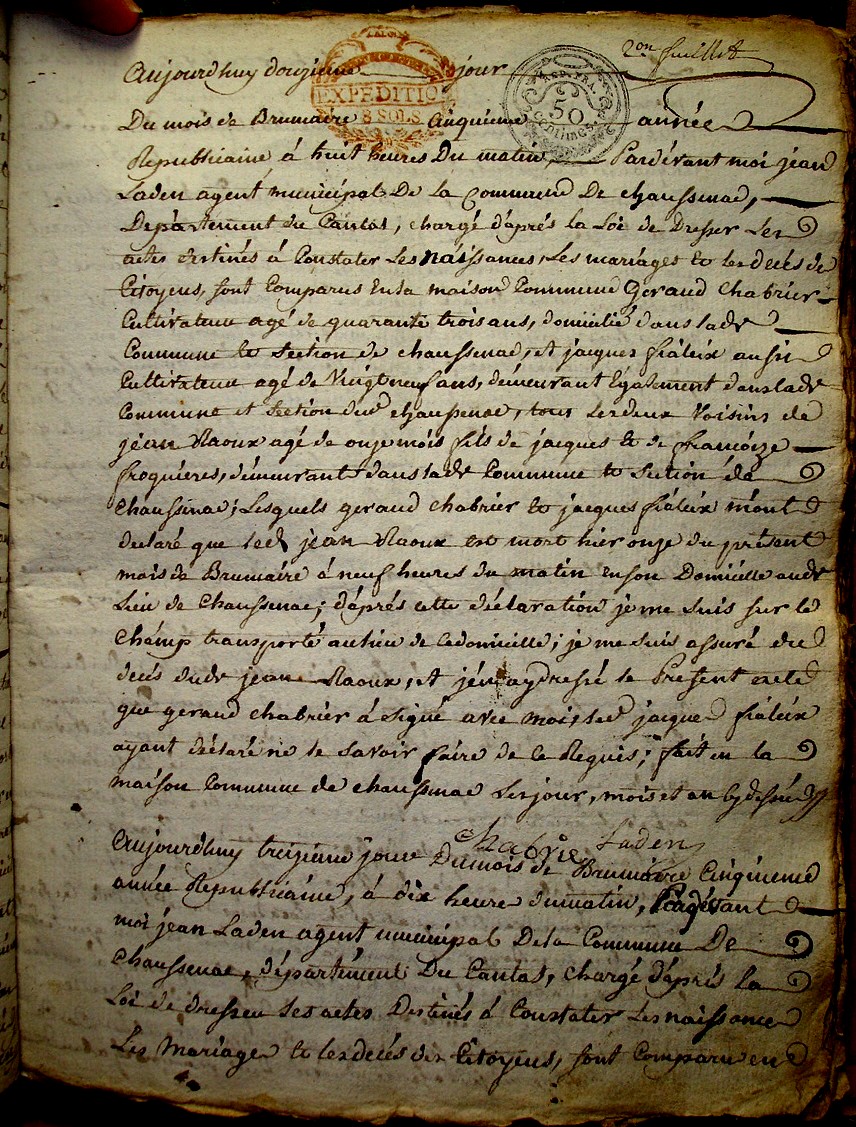 2on fuilliet
Aujourdhuy douzieme jour
EXPEDITION
8 SOLS
REP. FRA.
50
Centimes
Du mois de Brumaire Cinquieme année
Republicaine à huit heures Du matin, Pardevant moi jean
Laden agent municipal De la Commune De chaussenac,
Département du Cantal, chargé d'aprés la Loi de Dresser Les
actes destinés à Constater Les naissances, Les mariages et les decés de
Citoyens, sont Comparus En la maison Commune Geraud Chabrier
Cultivateur agé de quarante trois ans, domicilié dans ladt
Commune et section de chaussenac, et jacques fialeix aussi
Cultivateur agé de Vingt neuf ans, demeurant Egalement dans ladt
Commune et section dud chaussenac, tous les deux Voisins de
jean Raoux agé de onze mois fils de jacques et de francoize
froquieres, demeurant dans ladt Commune et section de
Chaussinac; Lesquels geraud chabrier et jacques fialeix m'ont
declaré que led jean Raoux est mort hier onze du présent
mois de Brumaire à neuf heures du matin en son Domicille audt
Lieu de Chaussenac; d'aprés cette déclaration je me suis sur le
Champ transporté au lieu de ce domicille; je me suis assuré du
decés dudt jean Raoux, et j'en ay dressé le Present acte
que geraud chabrier à signé avec moi, led jacques fialeix
ayant déclaré ne le savoir faire de ce Requis; fait en la
maison Commune de chaussenac Les jour, mois et an cy dessus
Chabrie Laden
Aujourdhuy treizieme jour Du mois de Brumaire Cinquieme
année Republicaine, à dix heure du matin, Pardevant
moi jean Laden agent municipal De la Commune De
Chaussenac, département Du Cantal, chargé d'aprés la
Loi de dresser Les actes Destinés à Constater Les naissance
Les Mariages et les decés des Citoyens, sont Comparu en